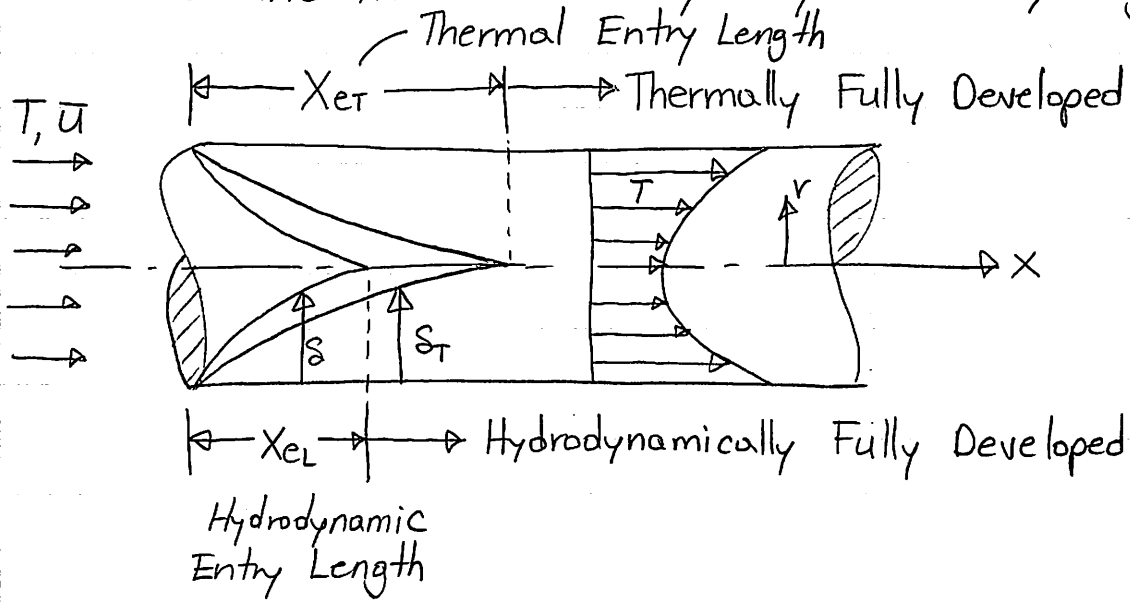 Thermal Entry Length
XeT
Thermally Fully Developed
T, ū
T
r
X
δ
δT
XeL
Hydrodynamically Fully Developed
Hydrodynamic
Entry Length